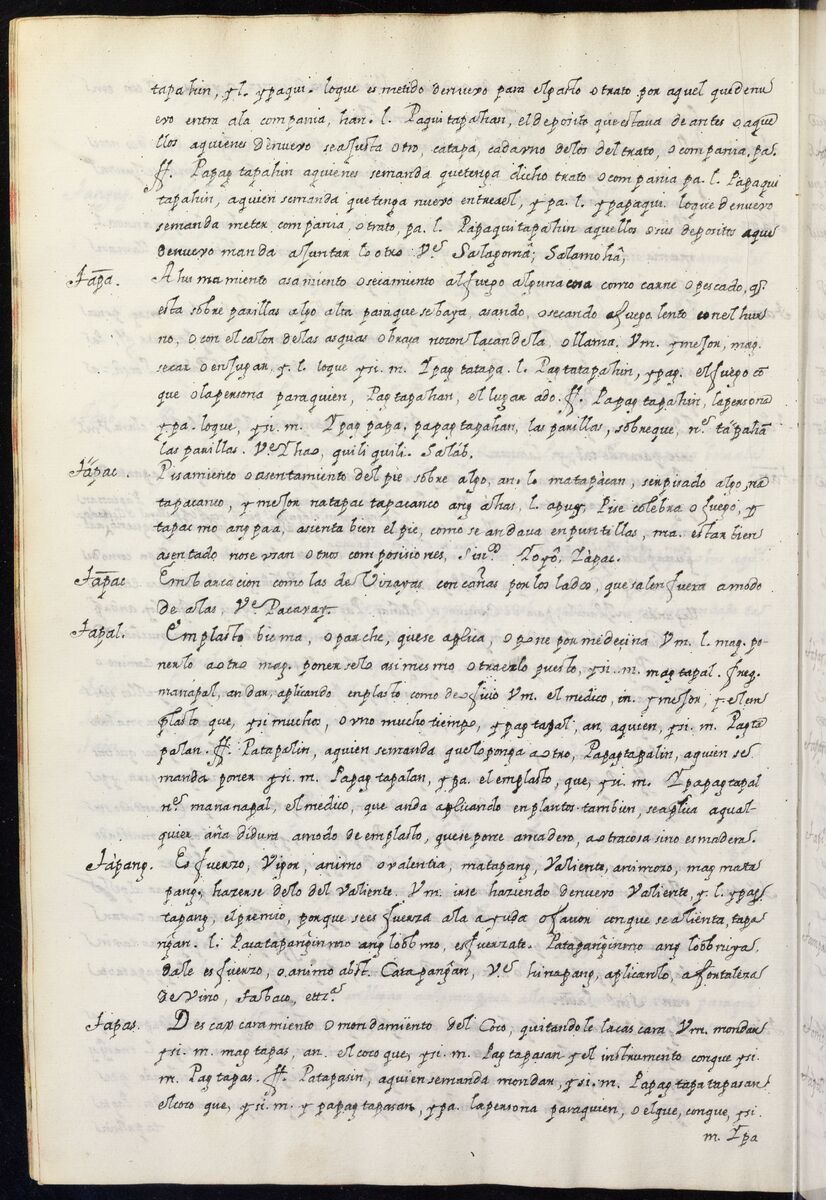 tapahin, y l. ypaqui. loque es metido denuevo para elpasto o trato por aquel quedenu
evo entra ala compania, han. l. Paquitapahan, el deposito que estava de antes o aque
llos aquienes denuevo seajusta otro, catapa, cadavno delos del trato, o compania, pa.
ff. Papag tapahin aquienes semanda quetenga dicho trato o compania pa. l. Papaqui
tapahin, aquien semanda que tenga nuevo entreael, y pa. l. ypapaqui. loque denuevo
semanda meter compania, o trato, pa. l. Papaquitapahin aquellos o sus depositos aque
denuevo manda ajuntar lo otro Ve. Salagomâ; Salamohâ;
Tapa. Ahumamiento asamiento o secamiento alfuego alguna cosa como carne o pescado, q.
esta sobre parillas algo alta paraque sebaya, asando, o secando afuego lento conelhu
no, o con el calor delas asquas o braza nocon lacandela, o llama. Vm. y mejor, mag.
secar o enjugar, y. l. loque y si. m. Ypag tatapa. l. Pagtatapahin, y pag. el fuego cõ
que o la persona paraquien, Pag tapahan, el lugar ado. ff. Papag tapahin, la persona
y pa. loque, y si. m. Ypag papa. papag tapahan, las parillas, sobreque, ne. tapahan
las parillas. Ve. Thao, quiliquili. Saláb.
Tapac. Pisamiento o asentamiento del pie sobre algo, an. lo matapàcan, serpisado algo, na
tapacanco, y mejor natapac tapacanco ang ahas, l. apuy. Pise colebra o fuego, y
tapac mo ang paa, asienta bien el pie, como se andava enpuntillas, ma. estar bien
asentado nose vsan otros composisiones, Sin.co Toyô, Tàpac.
Tapac Embarcacion como las de Vizayas con cañas por los lados, que salen fuera a modo
de alas, Ve. Pacaray.
Tapal. Emplasto bisma, o parche, quese aplica, o pone por medecina Vm. l. mag. po
nerlo aotro mag. ponerselo asimesmo o traerlo puesto, y si. m. magtapal. freq.
manapal, andar, aplicando enplasto como de oficio Vm. el medico, in. y mejor, y el em
plasto que, y si muchos, o vno mucho tiempo, y pag tapal, an, aquien, y si. m. Pagta
palan. ff. Patapalin, aquien semanda quelo ponga aotro, Papagtapalin, aquien se
manda poner y si. m. Papag tapalan, y pa. el emplasto, que, y si. m. Ypapag tapal
ne. mananapal, el medico, que anda aplicando enplantos tambien, seaplica aqual
quier aña didura amodo de emplasto, quese pone amadero, aotra cosa sino es madera.
Tàpang. Esfuerzo, Vigor, animo o valentia, matapang, Valiente, animoso, mag mata
pang, hazerse delo del Valiente. Vm. irse haziendo denuevo Valiente, y. l. ypag
tapang, el premio, porque sees fuerza ala ayuda o favor conque sealienta, tapa
ngan. l. Pacatapanginmo ang lobb mo, esfuerzate. Patapanginmo ang lobb niya,
dale esfuerzo, o animo abst. Catapangan, Ve. hinapang, aplicanlo, a fortaleza
de Vino, Tabaco, ettra.
Tapas. Descax caramiento o mondamiento del Coco, quitandole lacascara Vm. mondar
y si. m. mag tapas, an. el coco que, y si. m. Pag tapasan y el instrumento conque y si.
m. Pag tapas. ff. Patapasin, aquien semanda mondar, y si. m. Papag tapatapasan
elcoco que, y si. m. y papag tapasan, y pa. lapersona paraquien, o el que, conque, y si.
m. Ypa